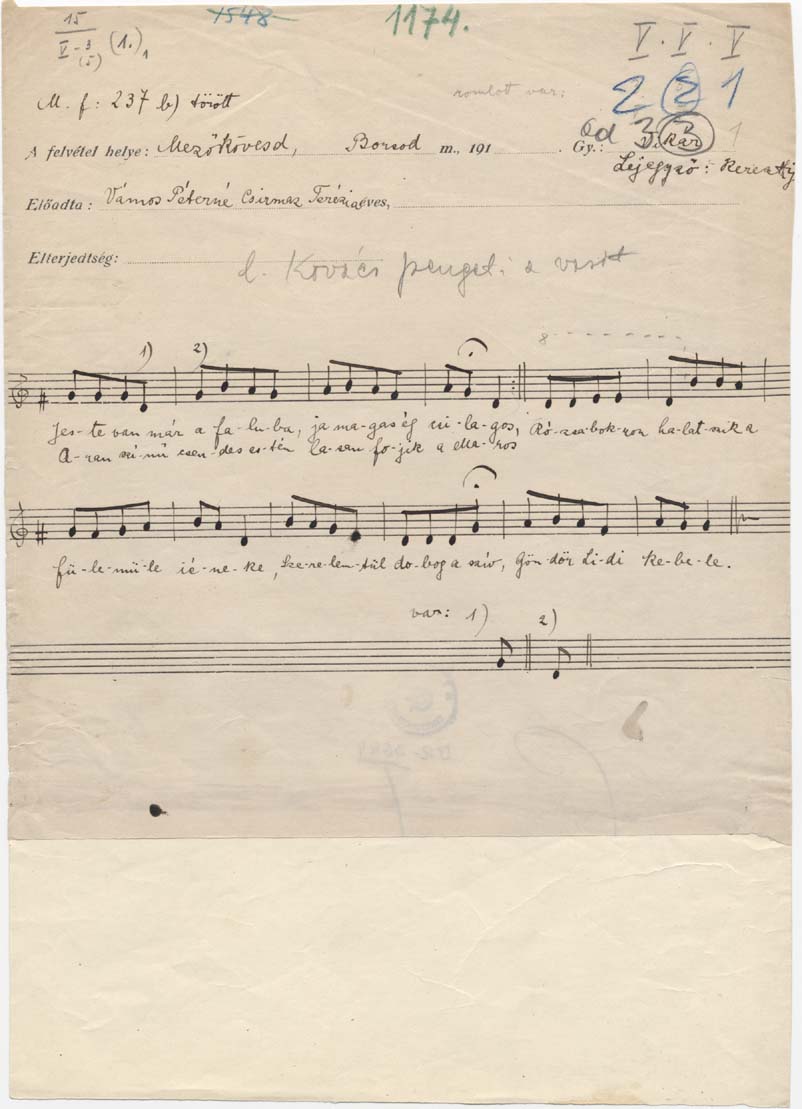 15
1548
1174.
V-3 (1.)1
(5)
V . V . V
M. f: 237 b) törött
romlot var:
2 2 1
A felvétel helye: Mezőkövesd, Borsod m., 191 . Gy.:
Lejegyző:
Előadta: Vámos Péterné Csirmaz Terézia éves,
Elterjedtség:
l. Kovács pengeti a vasát
1) 2)
8
Jes-te van már a fa-lu-ba, ja ma-gas ég csi-la-gos, Ró-zsa bok-ron ha-lat-szik a
A-ran szi-nű csen-des es-tén la-san fo-jik a Ma-ros
fü-le-mü-le ié-ne-ke, Sze-re-lem-tül do-bog a sziv, Gön-dör Li-di ke-be-le.
var: 1) 2)